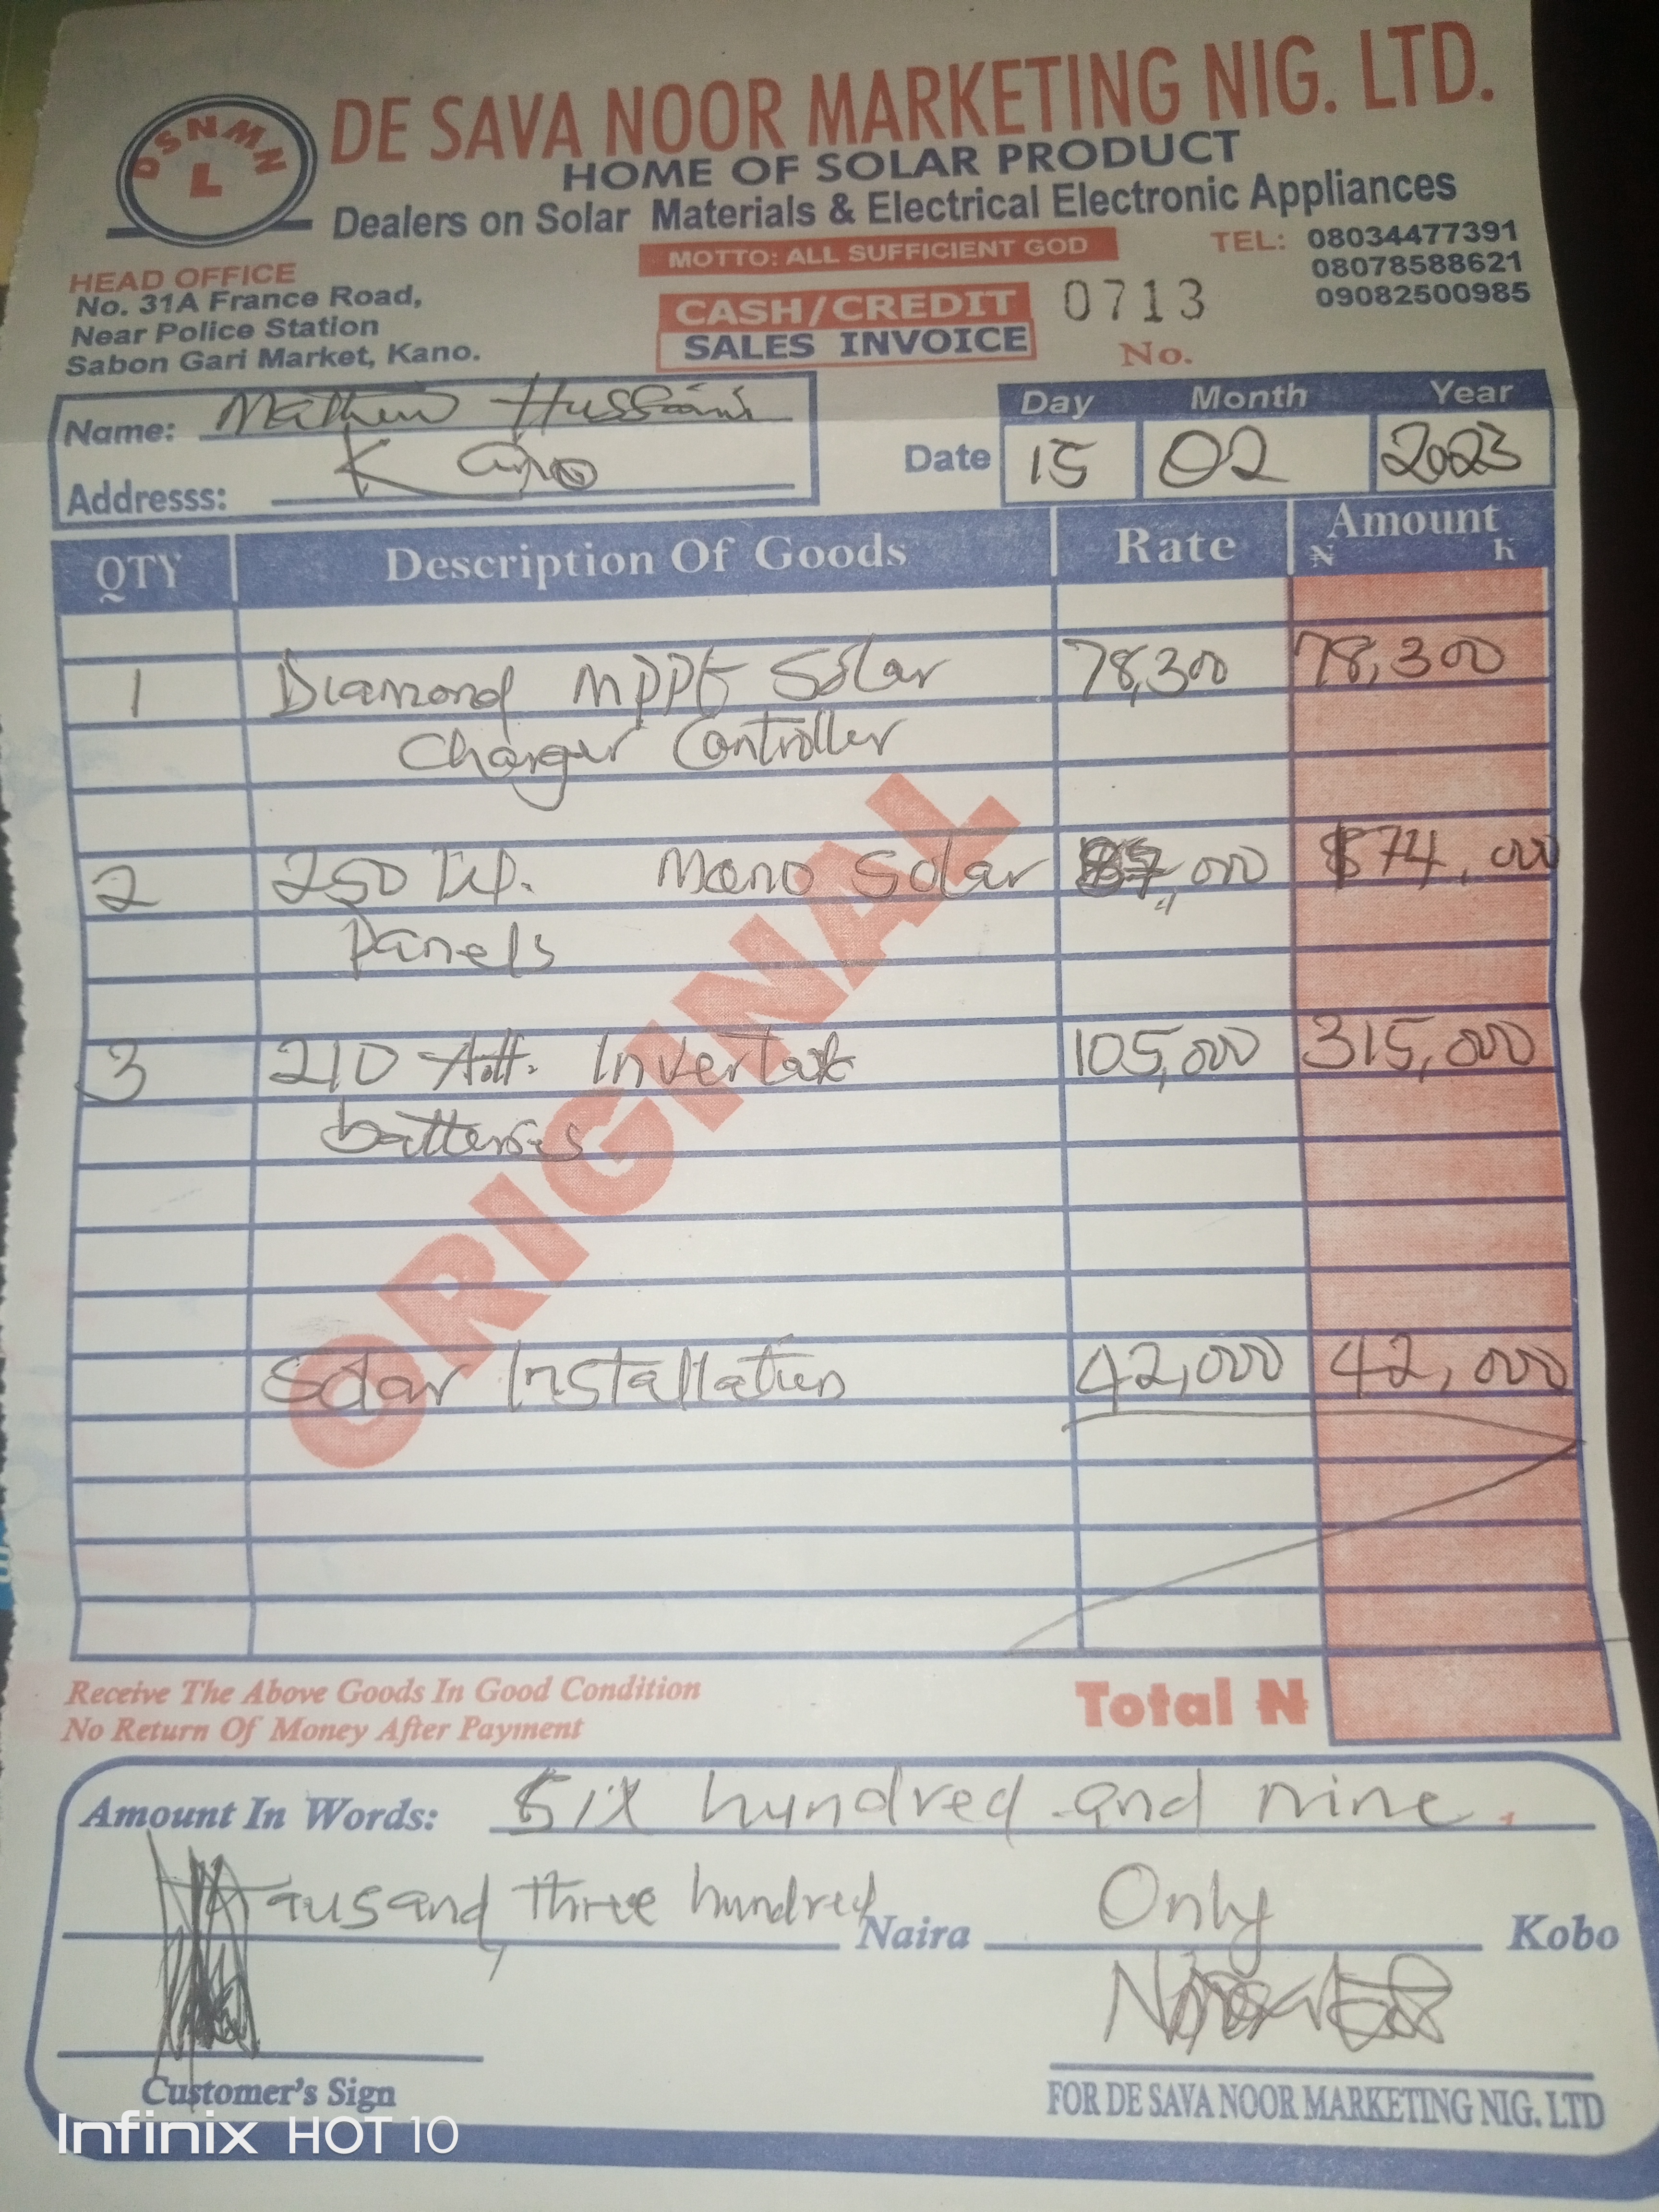 DSNMN
L
DE SAVA NOOR MARKETING NIG. LTD.
HOME OF SOLAR PRODUCT
Dealers on Solar Materials & Electrical Electronic Appliances
MOTTO: ALL SUFFICIENT GOD
TEL: 08034477391
08078588621
09082500985
HEAD OFFICE
No. 31A France Road,
Near Police Station
Sabon Gari Market, Kano.
CASH/CREDIT
SALES INVOICE
0713
No.
Name: Mathew Hussaini
Addresss: Kano
Day Month Year
Date 15 02 2023
QTY Description Of Goods Rate Amount
₦ k
1 Diamond MPPt Solar 78,300 78,300
Charger Controller
2 250 Mono Solar 87,000 174,000
Panels
3 210 Inverter 105,000 315,000
batteries
Solar Installation 42,000 42,000
ORIGINAL
Receive The Above Goods In Good Condition
No Return Of Money After Payment
Total ₦
Amount In Words: Six hundred and nine
tausand, three hundred Naira Only Kobo
Customer's Sign
FOR DE SAVA NOOR MARKETING NIG. LTD
Infinix HOT 10